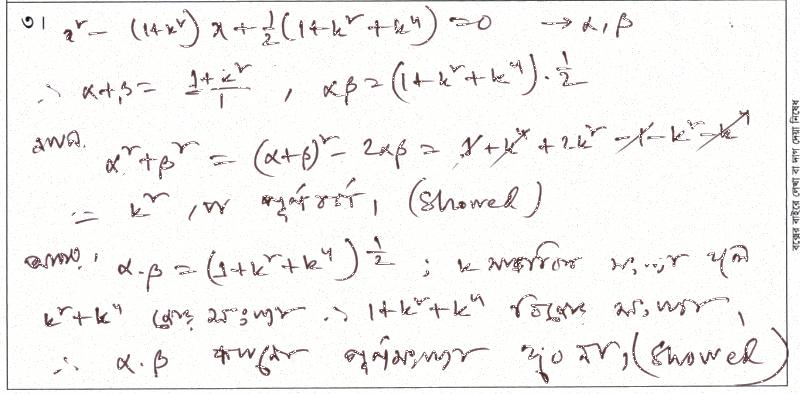 ৩। x² - (1+k²) x + ½(1+k²+k⁴) = 0 → α, β
∴ α+β = (1+k²)/1 , αβ = (1+k²+k⁴)·½
α²+β² = (α+β)² - 2αβ = 1+k⁴+2k²-1-k²-k⁴
= k² , যা পূর্ণবর্গ, (Showed)
আবার, α·β = (1+k²+k⁴)½ ; k
k²+k⁴ জোড় সংখ্যা ∴ 1+k²+k⁴ বিজোড় সংখ্যা,
∴ α·β পূর্ণসংখ্যা নয়, (Showed)
বক্সের বাইরে লেখা বা দাগ দেয়া নিষেধ